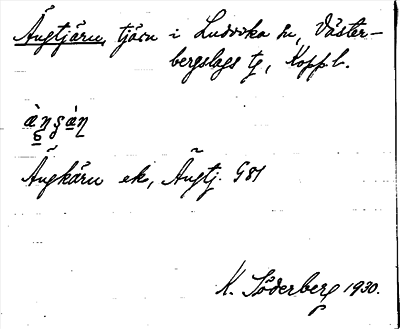 Ängtjärn, tjärn i Ludvika sn, Väster-
bergslags tg, Koppb.
Ängkärn ek, Ängtj. G81
K. Söderberg 1930.